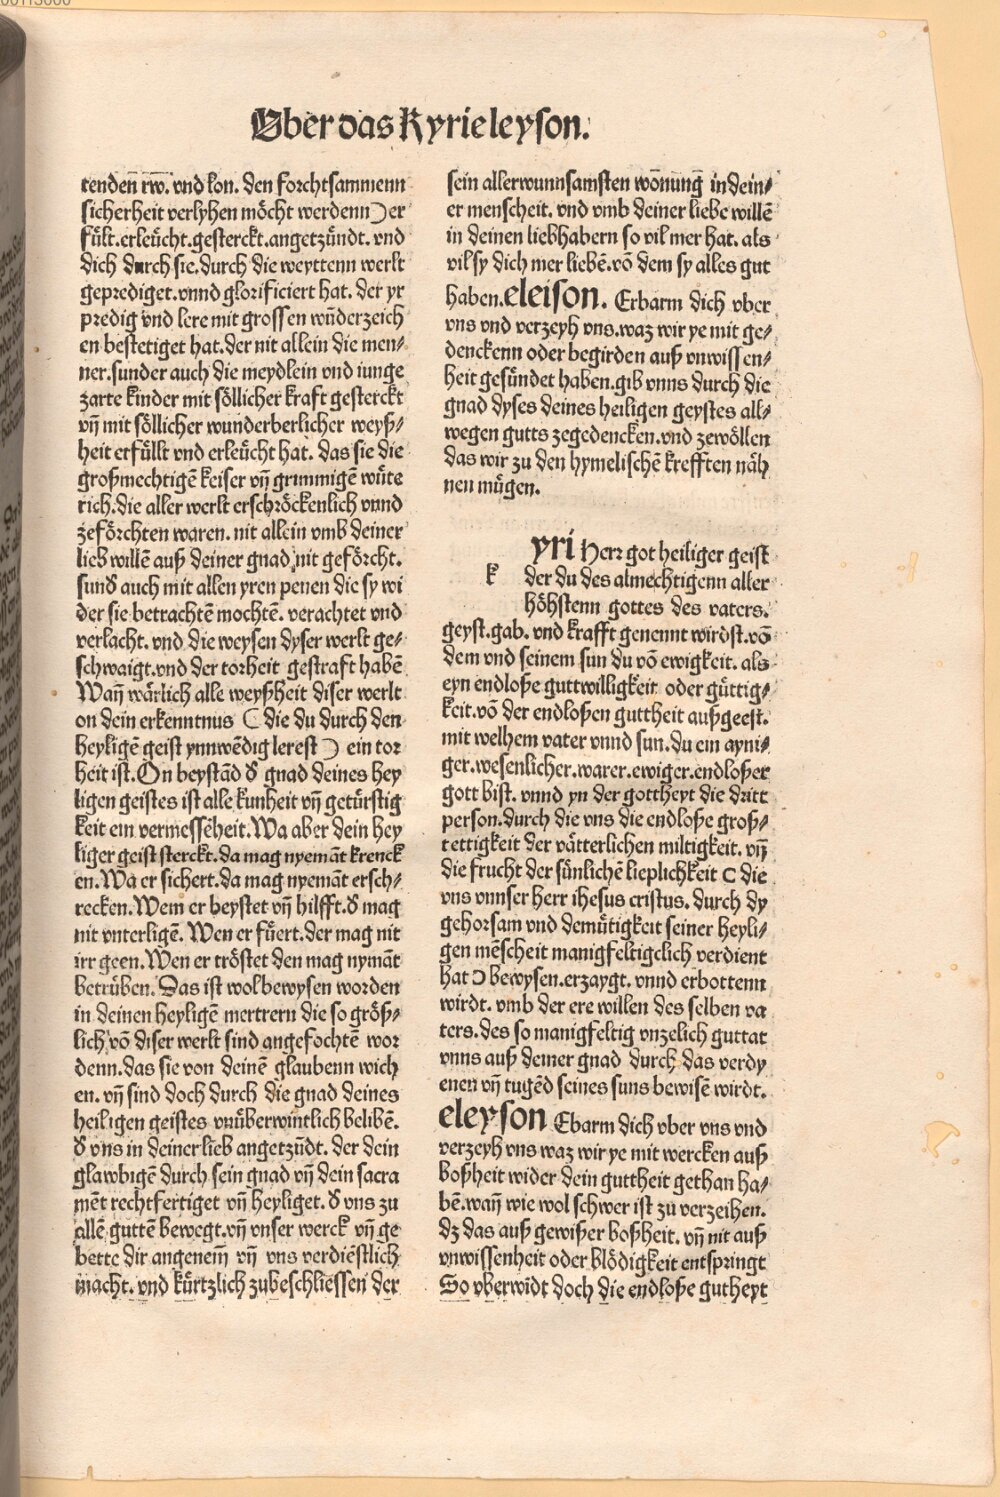 Uber das Kyrieleyson.
tenden̄ rw. vnd kon. den forchtsammenn
sicherheit verlyhen möcht werdenn) er
fült.erleücht.gesterckt.angetzündt. vnd
dich durch sie.durch die weyttenn werlt
geprediget.vnnd glorificiert hat. der yr
predig vnd lere mit grossen wūderzeich
en bestetiget hat.der nit allein die men⸗
ner.sunder auch die meydlein vnd iunge
zarte kinder mit söllicher kraft gesterckt
vn̄ mit söllicher wunderberlicher weyß⸗
heit erfüllt vnd erleücht hat. das sie die
großmechtigē keiser vn̄ grimmigē wüte
rich.die aller werlt erschröckenlich vnnd
zeförchten waren. nit allein vmb deiner
lieb willē auß deiner gnad nit geförcht.
sunđ auch mit allen yren penen die sy wi
der sie betrachtē mochtē. verachtet vnd
verlacht. vnd die weysen dyser werlt ge⸗
schwaigt.vnd der torheit gestraft habē
Wan̄ wärlich alle weyßheit diser werlt
on dein erkenntnus (die du durch den
heyligē geist ynnwēdig lerest) ein tor
heit ist. On beystād đ gnad deines hey
ligen geistes ist alle kunheit vn̄ getürstig
keit ein vermessēheit.Wa aber dein hey
liger geist sterckt.da mag nyemāt krenck
en.Wa er sichert.da mag nyemāt ersch⸗
recken.Wem er beystet vn̄ hilfft.đ mag
nit vnterligē. Wen er füert.der mag nit
irr geen.Wen er tröstet den mag nymāt
betrüben. Das ist wol bewysen worden
in deinen heyligē mertrern die so größ⸗
lich vō diser werlt sind angefochtē wor
denn.das sie von deinē glaubenn wich
en. vn̄ sind doch durch die gnad deines
heiligen geistes vnüberwintlich belibē.
đ vns in deiner lieb angetzūdt. der dein
glawbigē durch sein gnad vn̄ dein sacra
mēt rechtfertiget vn̄ heyliget. đ vns zu
allē guttē bewegt.vn̄ vnser werck vn̄ ge
bette dir angenem̄ vn̄ vns verdiēstlich
macht. vnd kürtzlich zubeschliessen der
sein allerwunnsamsten wōnung in dein⸗
er menscheit. vnd vmb deiner liebe willē
in deinen liebhabern so vil mer hat. als
vil sy dich mer liebē.vō dem sy alles gut
haben.eleison. Erbarm dich vber
vns vnd verzeyh vns.waz wir ye mit ge⸗
denckenn oder begirden auß vnwissen⸗
heit gesündet haben.gib vnns durch die
gnad dyses deines heiligen geystes all⸗
wegen gutts zegedencken.vnd zewöllen
das wir zu den hymelischē krefften näh
nen mügen.
yri Herr got heiliger geist
k der du des almechtigenn aller
höhstenn gottes des vaters.
geyst.gab. vnd krafft genennt wirdst.vō
dem vnd seinem sun du vō ewigkeit. als
eyn endloße guttwilligkeit oder güttig⸗
keit.vō der endloßen guttheit außgeest.
mit welhem vater vnnd sun.du ein ayni⸗
ger.wesenlicher.warer.ewiger.endloßer
gott bist. vnnd yn der gottheyt die dritt
person.durch die vns die endloße groß⸗
tettigkeit der vätterlichen miltigkeit. vn̄
die frucht der sünlichē lieplichkeit (die
vns vnnser herr ihesus cristus. durch dy
gehorsam vnd demütigkeit seiner heyli⸗
gen mēscheit manigfeltigclich verdient
hat) bewysen.erzaygt. vnnd erbottenn
wirdt. vmb der ere willen des selben va
ters.des so manigfeltig vnzelich guttat
vnns auß deiner gnad durch das verdy
enen vn̄ tugēd seines suns bewisē wirdt.
eleyson Ebarm dich vber vns vnd
verzeyh vns waz wir ye mit wercken auß
boßheit wider dein guttheit gethan ha⸗
bē.wan̄ wie wol schwer ist zu verzeihen.
dz das auß gewißer boßheit. vn̄ nit auß
vnwissenheit oder blödigkeit entspringt
So vberwīdt doch die endloße gutheyt